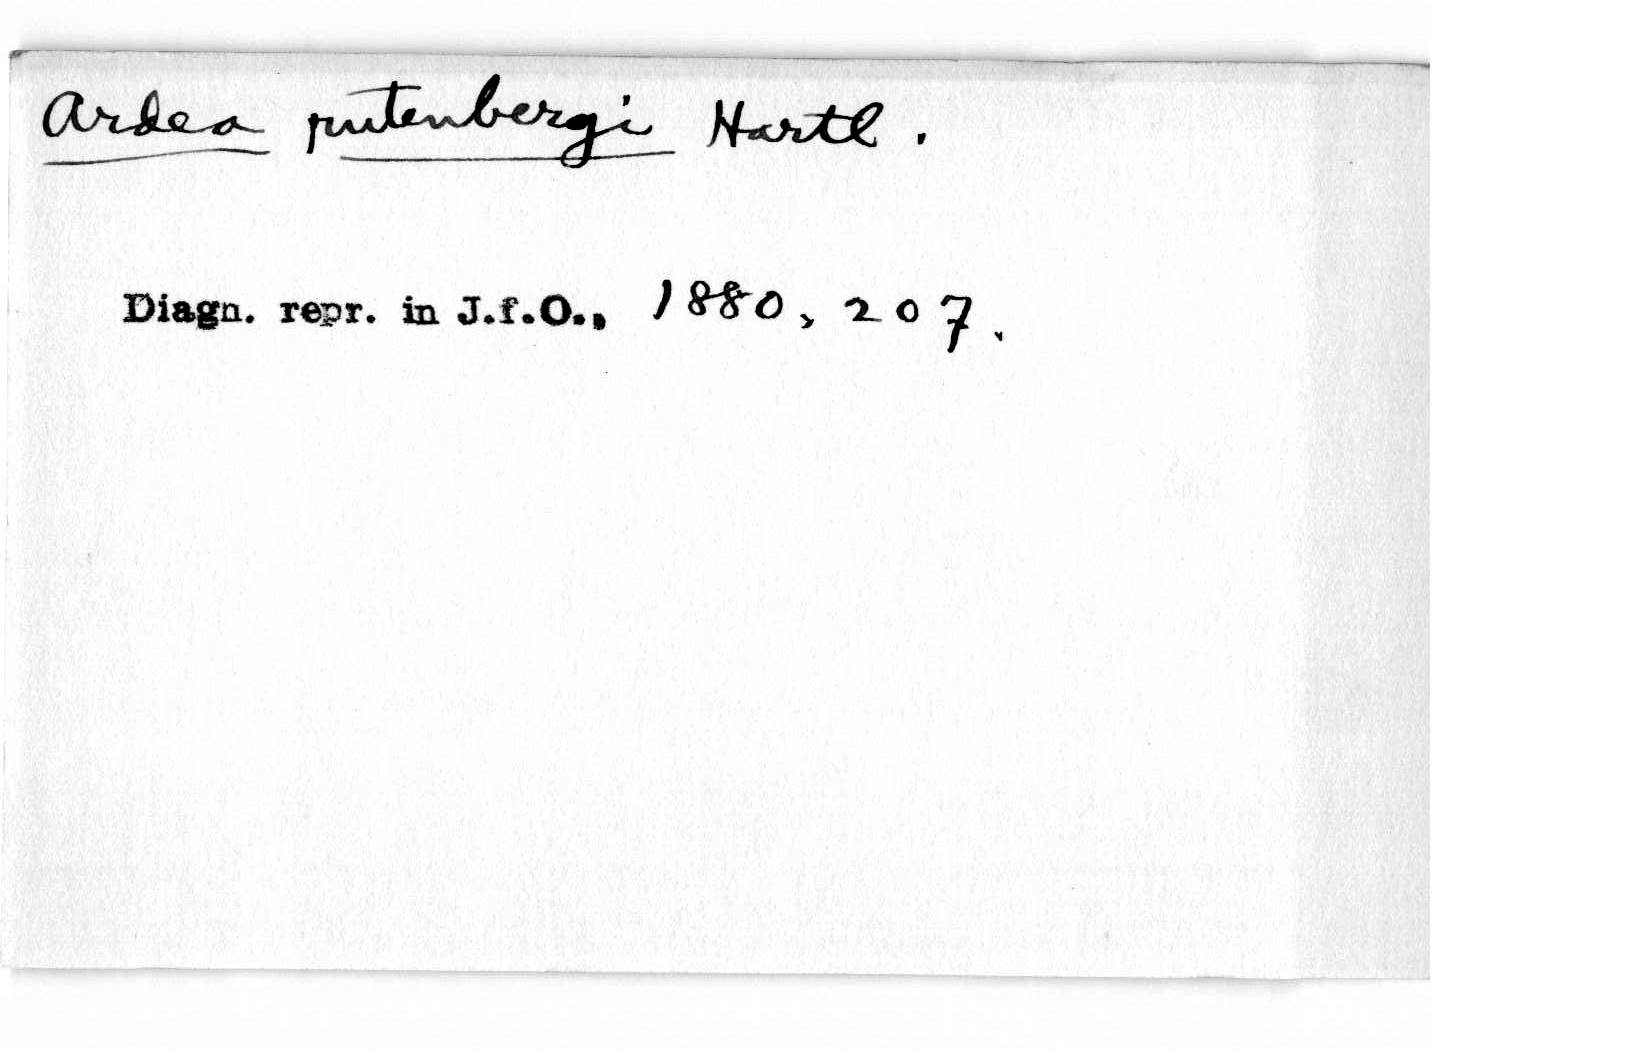 Ardea rutenbergi Hartl.
Diagn. repr. in J.f.O., 1880, 207.